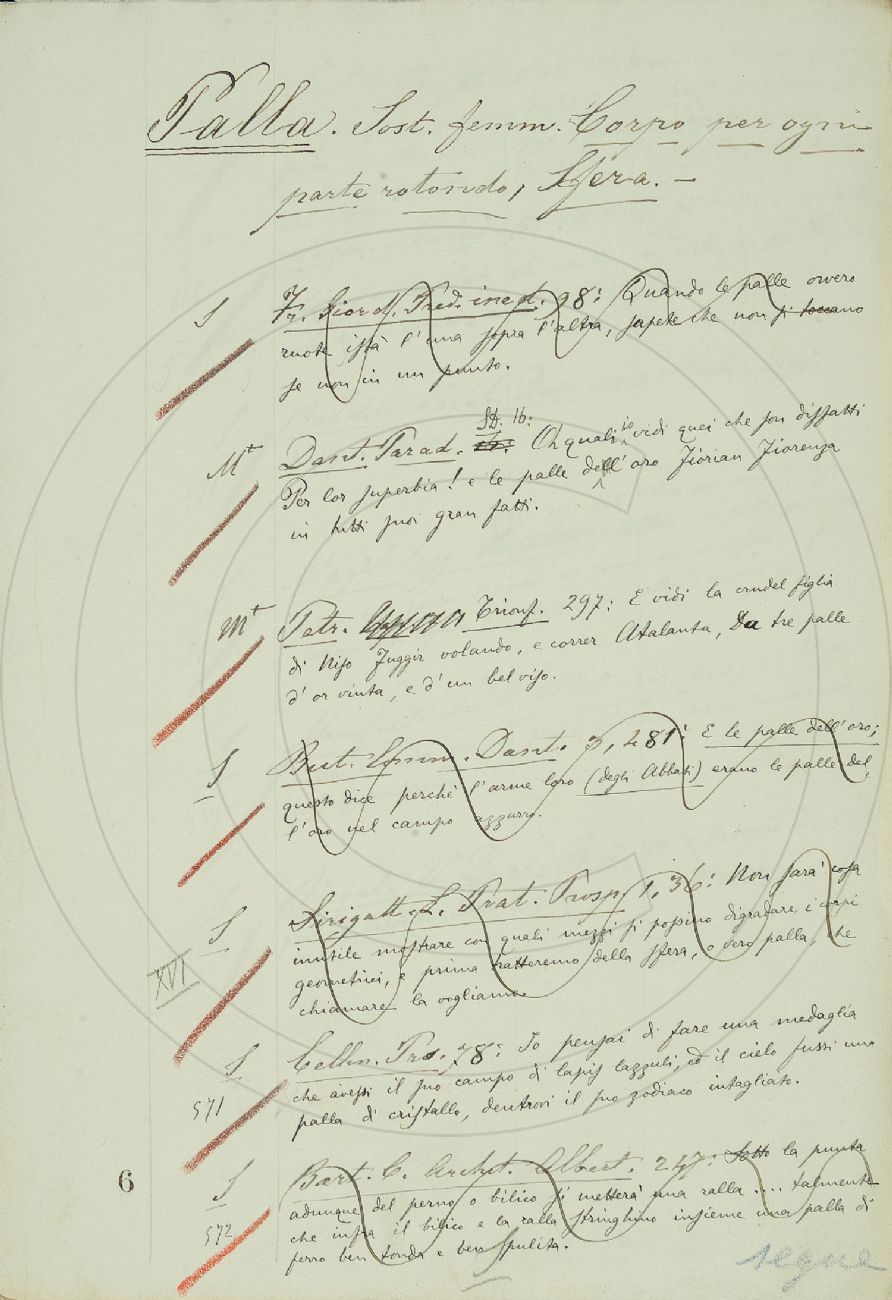 Palla. Sost. femm. Corpo per ogni
parte rotondo, Sfera. —
S Fr. Giord. Pred. ined. 98: Quando le palle ovvero
ruote istà l'una sopra l'altra, sapete che non si toccano
se non in un punto.
Mt Dant. Parad. 16: Oh quali io vidi quei che son disfatti
Per lor superbia! e le palle dell'oro Fiorian Fiorenza
in tutti suoi gran fatti.
Mt Petr. Trionf. 297: E vidi la crudel figlia
di Niso Fuggir volando, e correr Atalanta, Da tre palle
d'or vinta, e d'un bel viso.
S But. Comm. Dant. 3, 481: E le palle dell'oro;
questo dice perchè l'arme loro (degli Abbati) erano le palle del-
l'oro nel campo azzurro.
S Sirigatt. L. Prat. Prosp. 1, 36: Non sarà cosa
XVI inutile mostrare con quali mezzi si possino digradare i corpi
geometrici, e prima tratteremo della sfera, o vero palla, che
chiamare la vogliamo.
S Cellin. Pros. 78: Io pensai di fare una medaglia
che avessi il suo campo di lapis lazzuli, ed il cielo fussi una
571 palla di cristallo, dentrovi il suo zodiaco intagliato.
6 S Bart. C. Archit. Albert. 247: Sotto la punta
adunque del perno o bilico si metterà una ralla .... talmente
572 che infra il bilico e la ralla stringhino insieme una palla di
ferro ben tonda e ben pulita.
segue